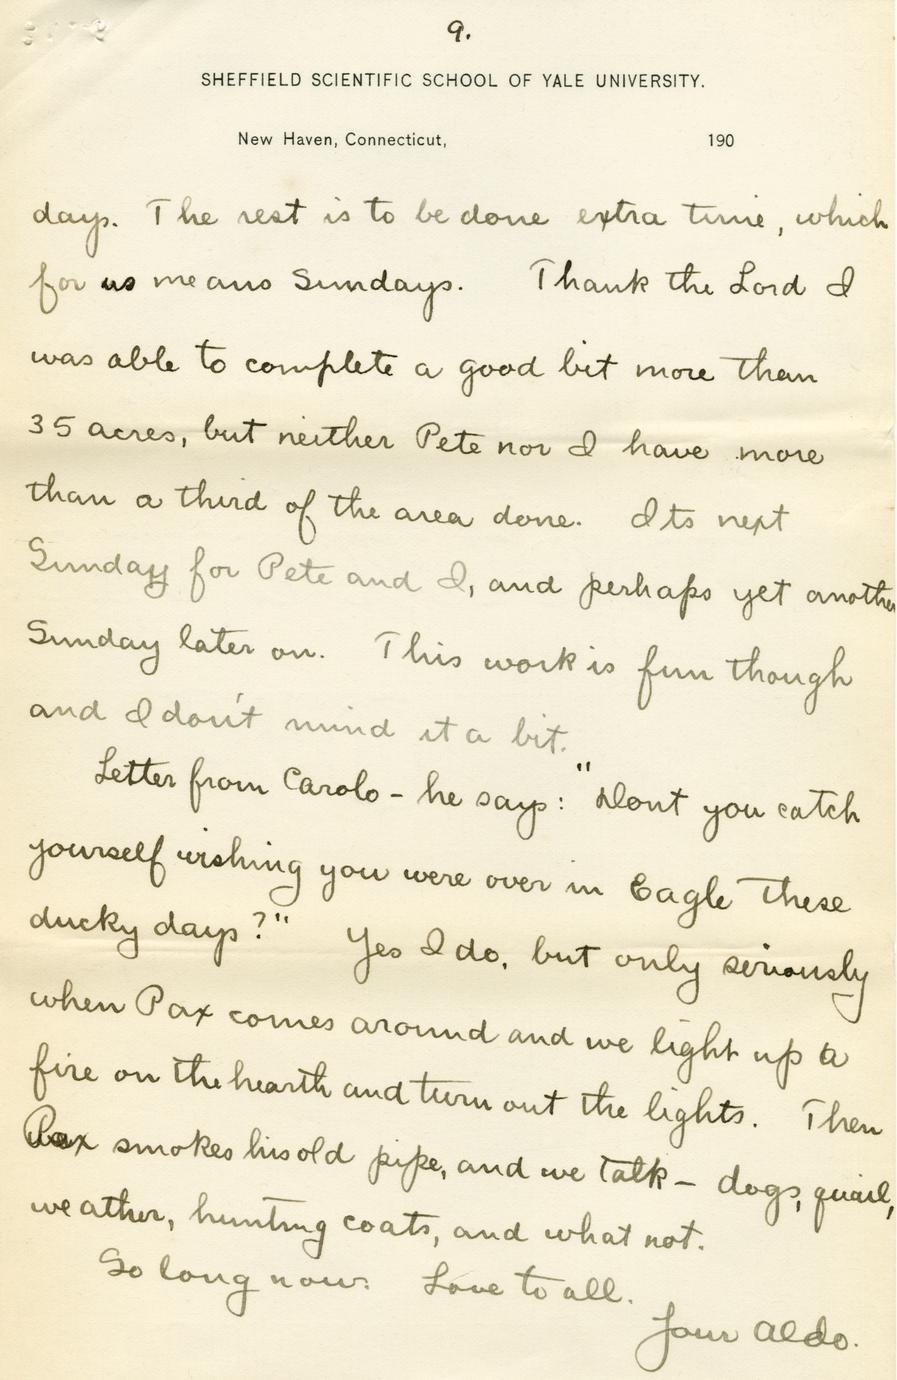 9.
SHEFFIELD SCIENTIFIC SCHOOL OF YALE UNIVERSITY.
New Haven, Connecticut, 190
days. The rest is to be done extra time, which
for us means Sundays. Thank the Lord I
was able to complete a good bit more than
35 acres, but neither Pete nor I have more
than a third of the area done. Its next
Sunday for Pete and I, and perhaps yet another
Sunday later on. This work is fun though
and I don't mind it a bit.
Letter from Carolo - he says: "Dont you catch
yourself wishing you were over in Eagle these
ducky days?" Yes I do, but only seriously
when Pax comes around and we light up a
fire on the hearth and turn out the lights. Then
Pax smokes his old pipe, and we talk - dogs, quail,
weather, hunting coats, and what not.
So long now. Love to all.
Your Aldo.